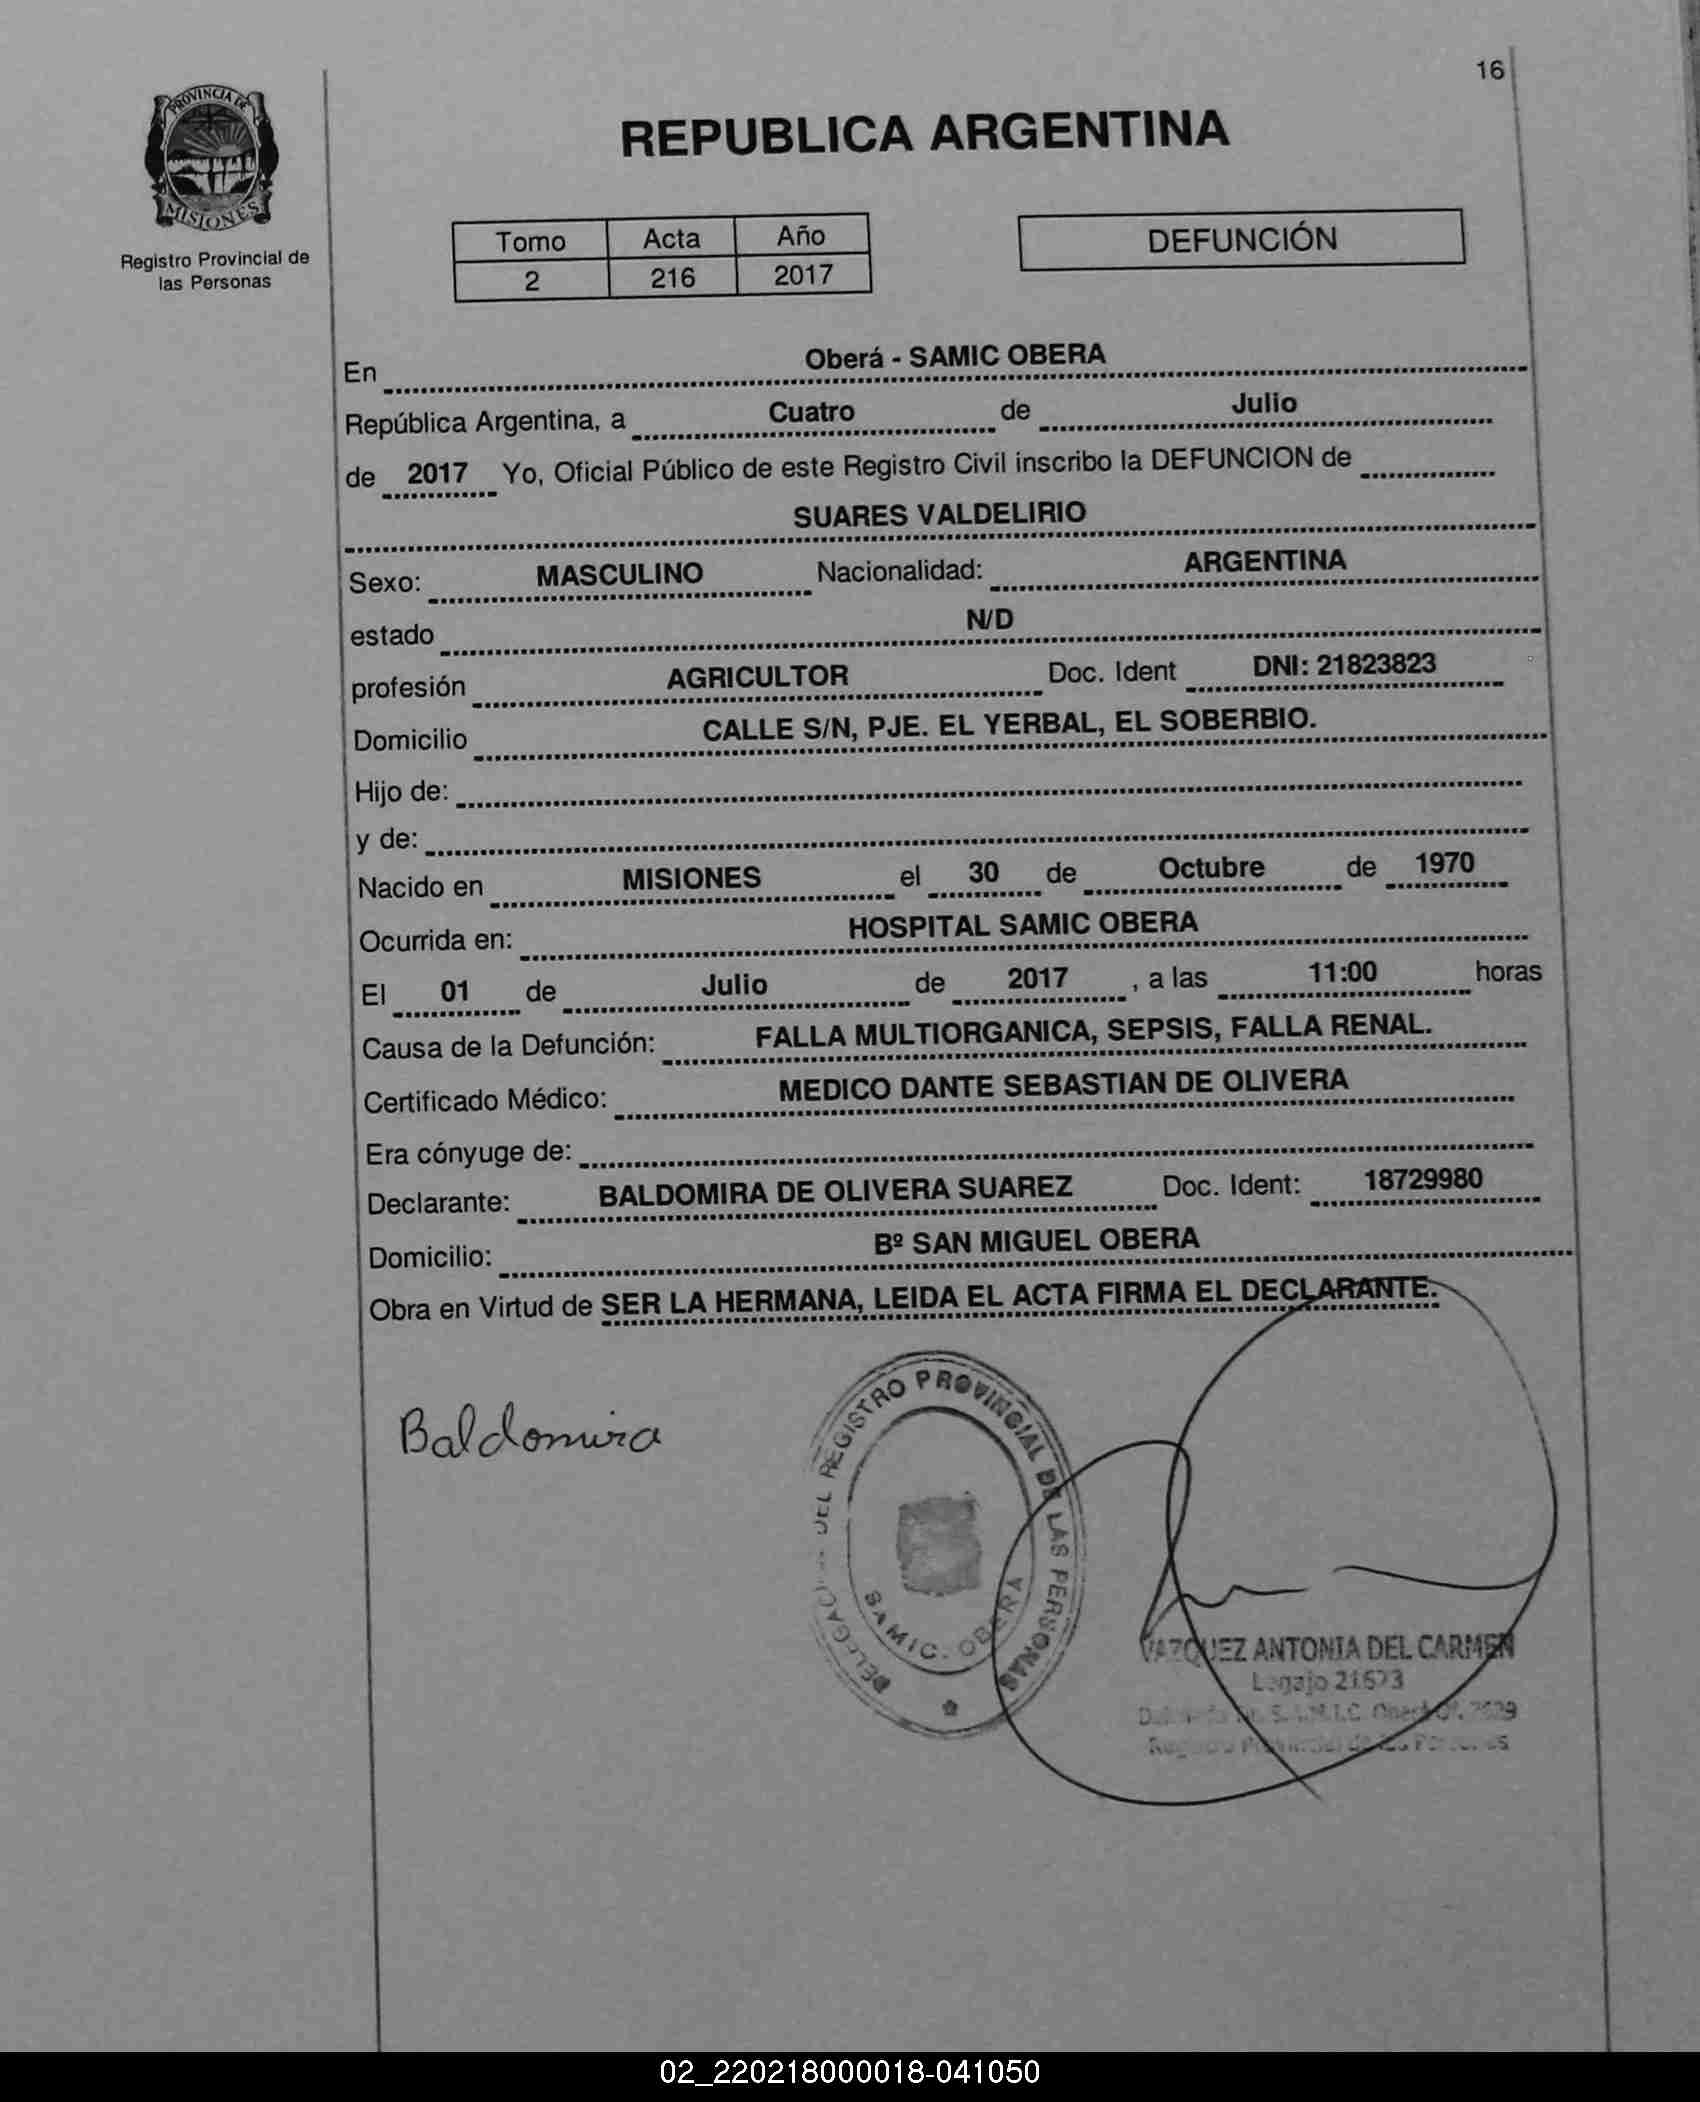 16
PROVINCIA DE
MISIONES
Registro Provincial de
las Personas
REPUBLICA ARGENTINA
Tomo Acta Año
2 216 2017
DEFUNCIÓN
En Oberá - SAMIC OBERA
República Argentina, a Cuatro de Julio
de 2017 Yo, Oficial Público de este Registro Civil inscribo la DEFUNCION de
SUARES VALDELIRIO
Sexo: MASCULINO Nacionalidad: ARGENTINA
estado N/D
profesión AGRICULTOR Doc. Ident DNI: 21823823
Domicilio CALLE S/N, PJE. EL YERBAL, EL SOBERBIO.
Hijo de:
y de:
Nacido en MISIONES el 30 de Octubre de 1970
Ocurrida en: HOSPITAL SAMIC OBERA
El 01 de Julio de 2017 , a las 11:00 horas
Causa de la Defunción: FALLA MULTIORGANICA, SEPSIS, FALLA RENAL.
Certificado Médico: MEDICO DANTE SEBASTIAN DE OLIVERA
Era cónyuge de:
Declarante: BALDOMIRA DE OLIVERA SUAREZ Doc. Ident: 18729980
Domicilio: Bº SAN MIGUEL OBERA
Obra en Virtud de SER LA HERMANA, LEIDA EL ACTA FIRMA EL DECLARANTE.
Baldomira
DEL REGISTRO PROVINCIAL DE LAS PERSONAS
SAMIC. OBERA
VAZQUEZ ANTONIA DEL CARMEN
Legajo
02_220218000018-041050